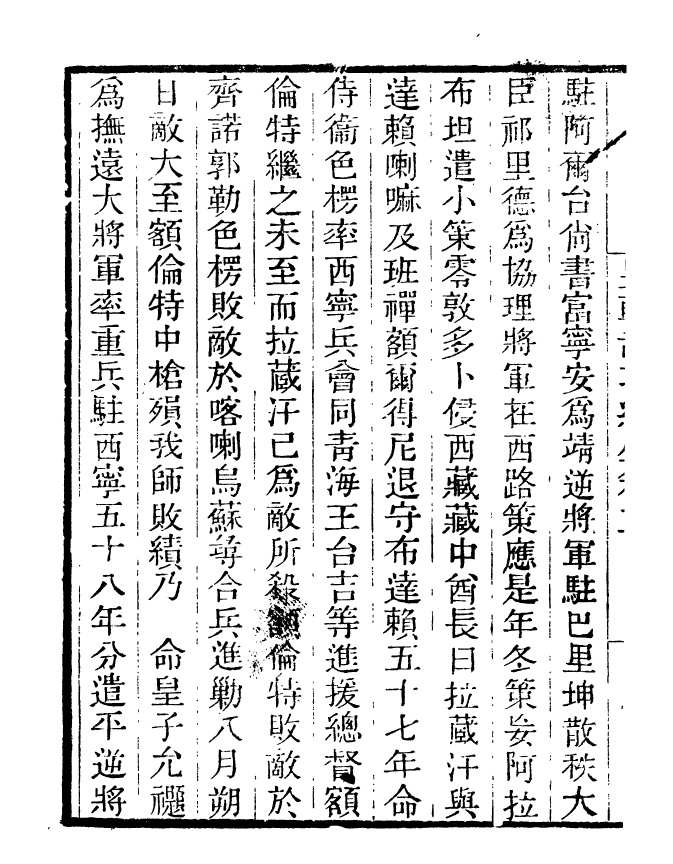 駐阿爾台尙書富寧安爲靖逆將軍駐巴里坤散秩大
臣祁里德爲協理將軍在西路策應是年冬策妄阿拉
布坦遣小策零敦多卜侵西藏藏中酋長曰拉藏汗與
達賴喇嘛及班禪額爾得尼退守布達賴五十七年命
侍衞色楞率西寧兵會同靑海王台吉等進援總督額
倫特繼之未至而拉藏汗已爲敵所殺額倫特敗敵於
齊諾郭勒色楞敗敵於喀喇烏蘇尋合兵進勦八月朔
日敵大至額倫特中槍殞我師敗績乃　命皇子允禵
爲撫遠大將軍率重兵駐西寧五十八年分遣平逆將